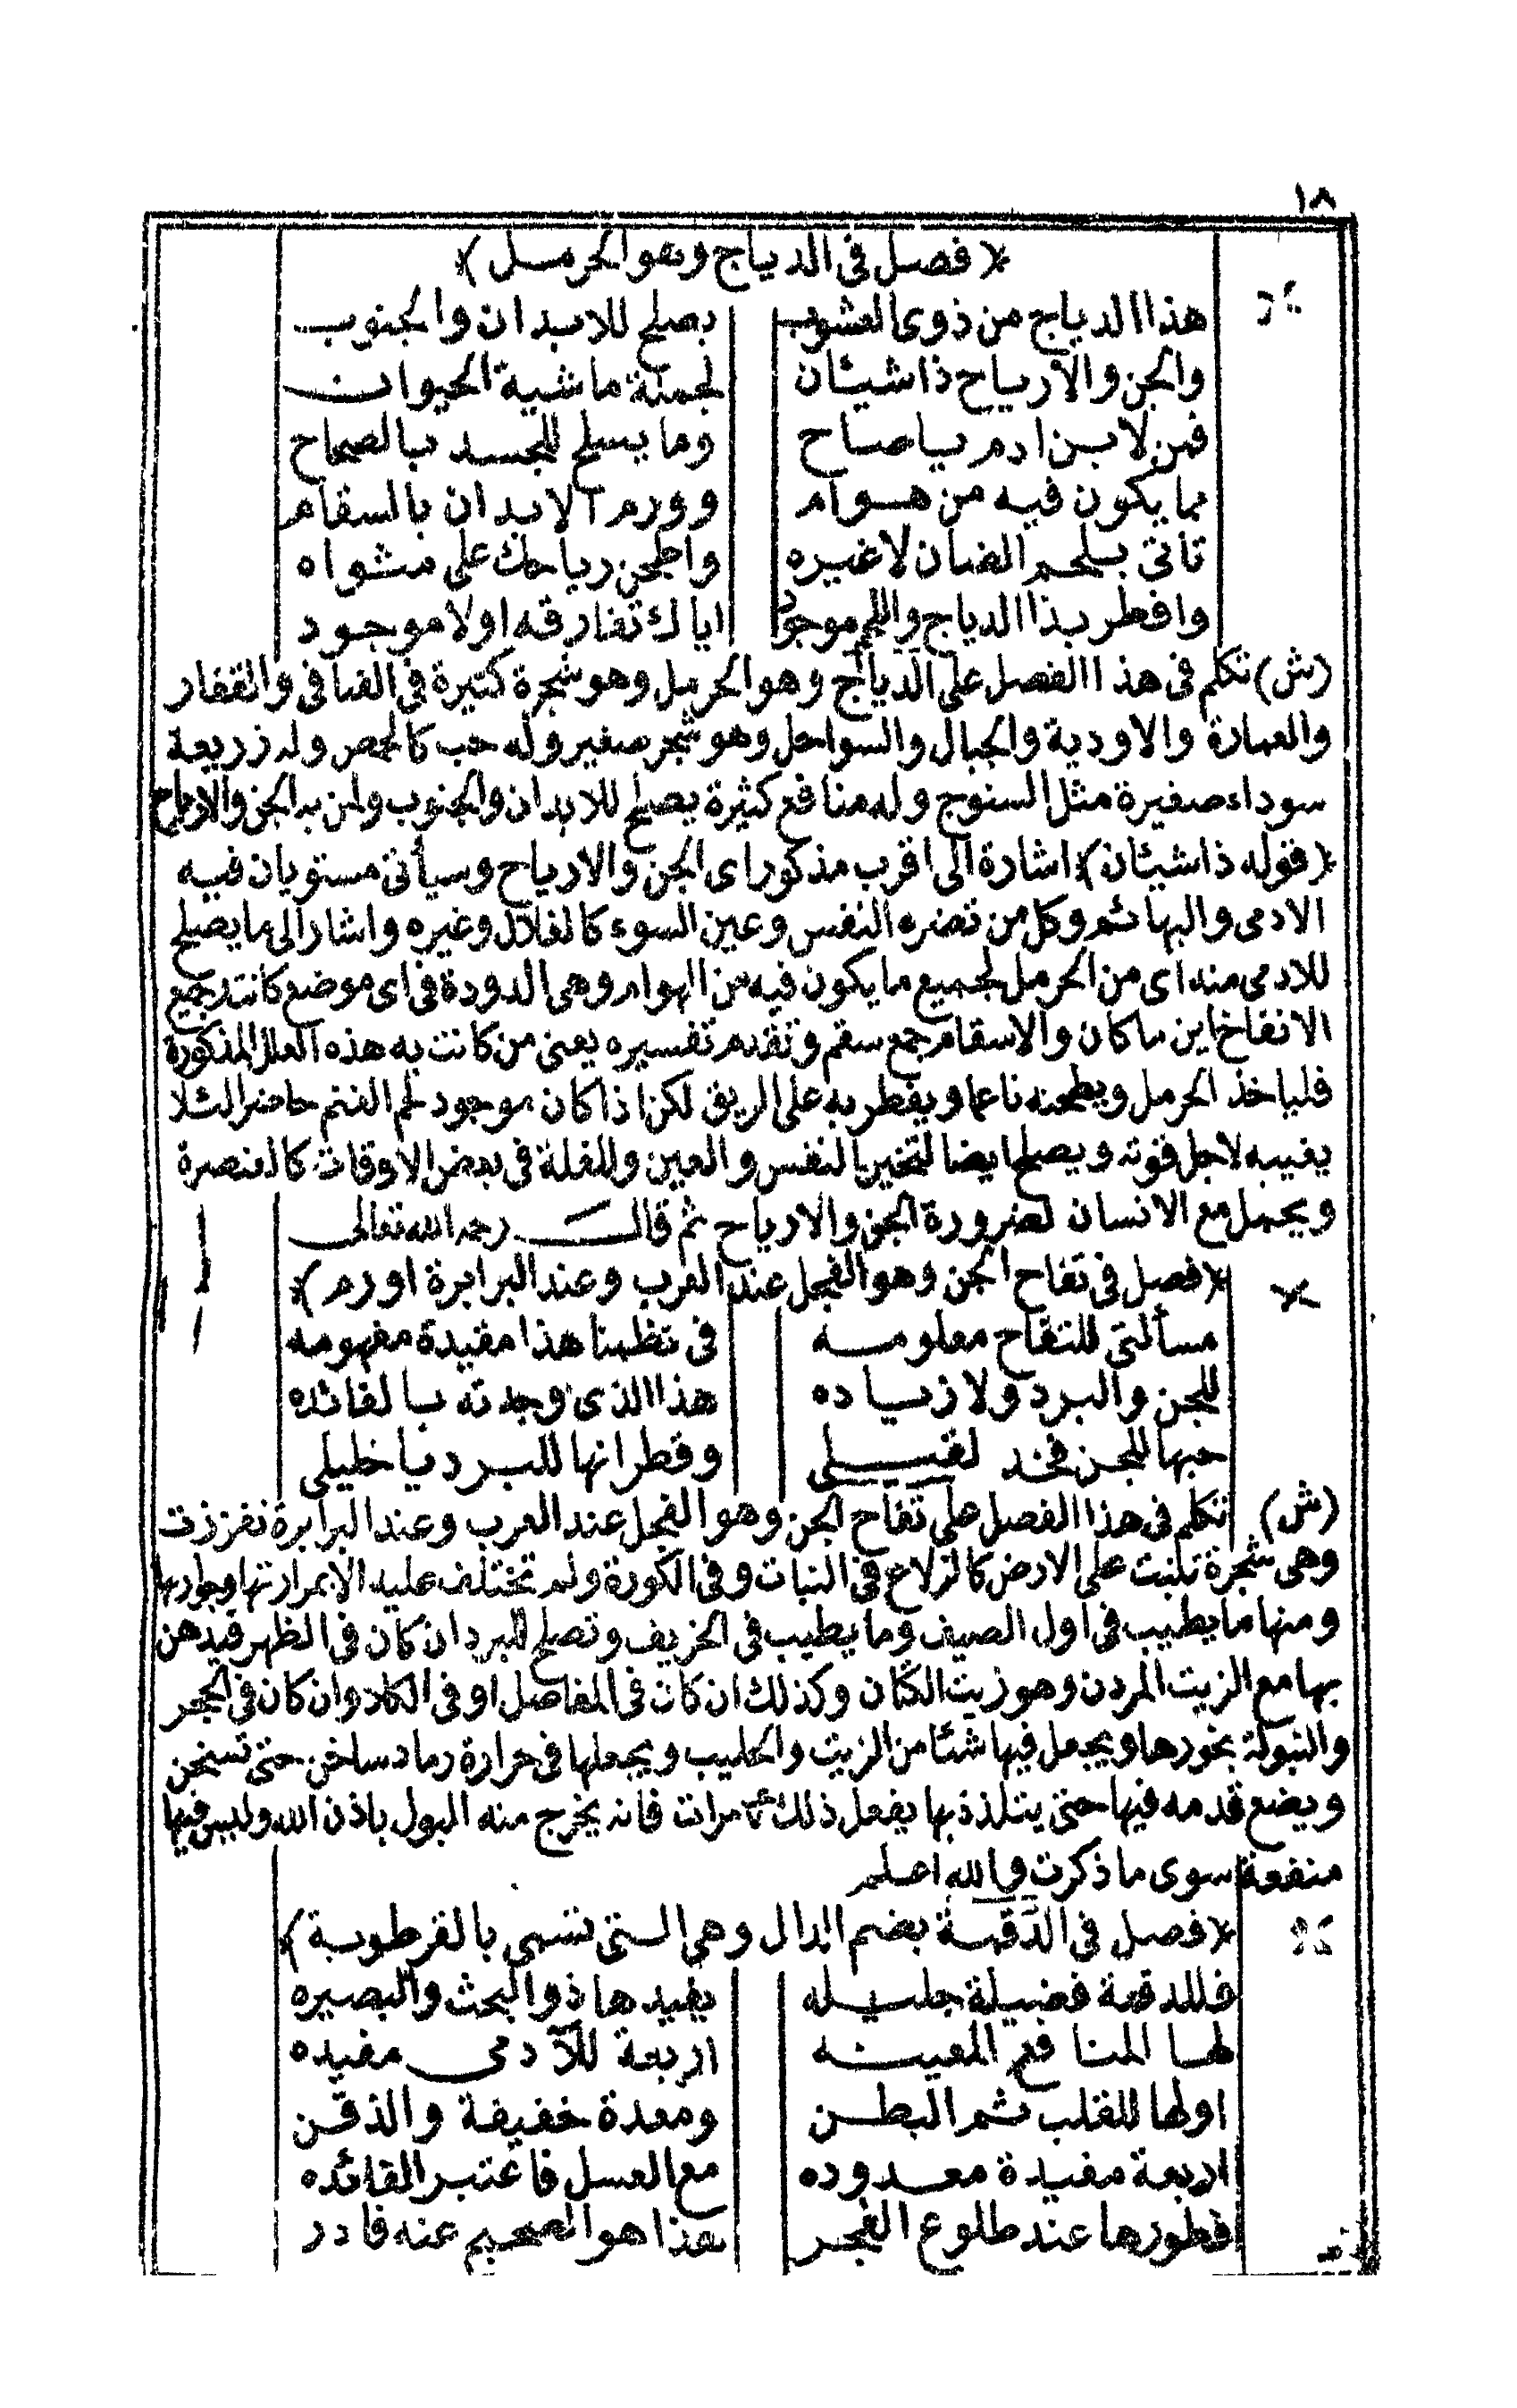 ١٨
﴿فصل فى الدياج وهو الحرمل﴾
هذا الدياج من ذوى العشوب يصلح للابدان والجنوب
والجن والارياح ذا شيئان لجملة ماشية الحيوان
فمن لابن ادم ياصاح وما يسلح للجسد بالصحاح
بما يكون فيه من هوام وورم الابدان بالسقام
تاتى بلحم الضان لا غيره واطحن رياحك على مشواه
وافطر بذا الدياج واللحم موجود اياك تفارقه اولا موجود
(ش) تكلم فى هذا الفصل على الدياج وهو الحرمل وهو شجرة كثيرة فى الفيافى والقفار
والعمارة والاودية والجبال والسواحل وهو شجر صغير وله حب كالحمص وله زريعة
سوداء صغيرة مثل السنوج وله منافع كثيرة يصلح للابدان والجنوب ولمن به الجن والارياح
﴿قوله ذا شيئان﴾ اشارة الى اقرب مذكور اى الجن والارياح وسيأتى مستويان فيه
الادمى والبهائم وكل من تضره النفس وعين السوء كالغلال وغيره واشار الى ما يصلح
للادمى منه اى من الحرمل لجميع ما يكون فيه من الهوام وهى الدودة فى اى موضع كانت وجميع
الانفاخ اين ما كان والاسقام جمع سقم وتقدم تفسيره يعنى من كانت به هذه العلل المذكورة
فلياخذ الحرمل ويطحنه ناعما ويفطر به على الريق لكن اذا كان موجود لحم الغنم حاضرا لئلا
يغيبه لاجل قوته ويصلح ايضا لتبخير النفس والعين وللغلة فى بعض الاوقات كالعنصرة
ويحمل مع الانسان لضرورة الجن والارياح ثم قال رحمه الله تعالى
﴿فصل فى تفاح الجن وهو الفيجل عند العرب وعند البرابرة اورم﴾
مسألتى للتفاح معلومه فى نظمنا هذا مقيدة مفهومه
للجن والبرد ولا زياده هذا الذى وجدته بالفائده
حبها للجن فخذ لقيلى وقطرانها للبرد يا خليلى
(ش) تكلم فى هذا الفصل على تفاح الجن وهو الفيجل عند العرب وعند البرابرة تفرزت
وهى شجرة تلنبت على الارض كالزلاع فى النبات وفى الكورة ولم تختلف عليه الا بمرارتها وجوارها
ومنها ما يطيب فى اول الصيف وما يطيب فى الخريف وتصلح للبرد ان كان فى الظهر فيدهن
بها مع الزيت المردن وهو زيت الكتان وكذلك ان كان فى المفاصل او فى الكلاد وان كان فى الحجر
والنبولة بخورها ويجعل فيها شئا من الزيت والحليب ويجعلها فى حرارة رماد ساخن حتى تسخن
ويضع قدمه فيها حتى يتلذذ بها يفعل ذلك مرات فانه يخرج منه البول باذن الله وليس فيها
منفعة سوى ما ذكرت والله اعلم
﴿فصل فى الدقمة بضم الدال وهى التى تسمى بالقرطوبة﴾
فللدقمة فضيلة جليله يفيدها ذو البحث والبصيره
لها المنافع المعينه اربعة للآدمى مفيده
اولها للقلب ثم البطن ومعدة خفيفة والذقن
اربعة مفيدة معدوده مع العسل فاعتبر الفائده
فطورها عند طلوع الفجر هذا هو الصحيح عنه فادر